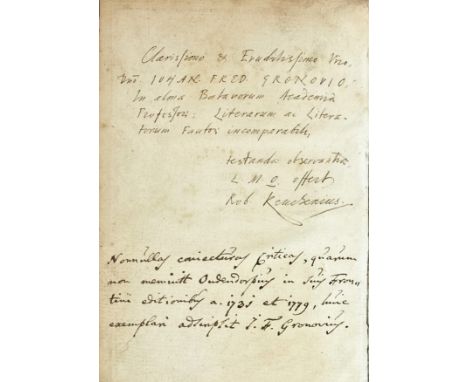 Clarissimo & Eruditissimo Viro,
Dno. IOHAN FRED GRONOVIO
In alma Batavorum Academia
Professori: Literarum ac Litera-
torum Fautori incomparabili,
testandae observantiae
L M Q offert
Rob Keuchenius.
Nonnullas coniecturas Criticas, quarum
non meminit Oudendorpius in suis Fron-
tini editionibus a. 1731 et 1779, huic
exemplari adscripsit J. F. Gronovius.